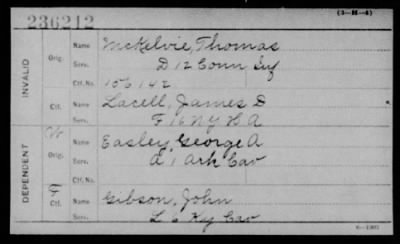 (3-H-4)
236212
INVALID
Orig.
Name McKelvie, Thomas
Serv. D 12 Conn Inf
Ctf. No. 106142
Ctf.
Name Lacell, James D
Serv. F 16 NY H A
DEPENDENT
W
Orig.
Name Easley, George A
Serv. A 1 Ark Cav
Ctf. No.
Ctf.
Name Gibson, John
Serv. L 6 Ky Cav